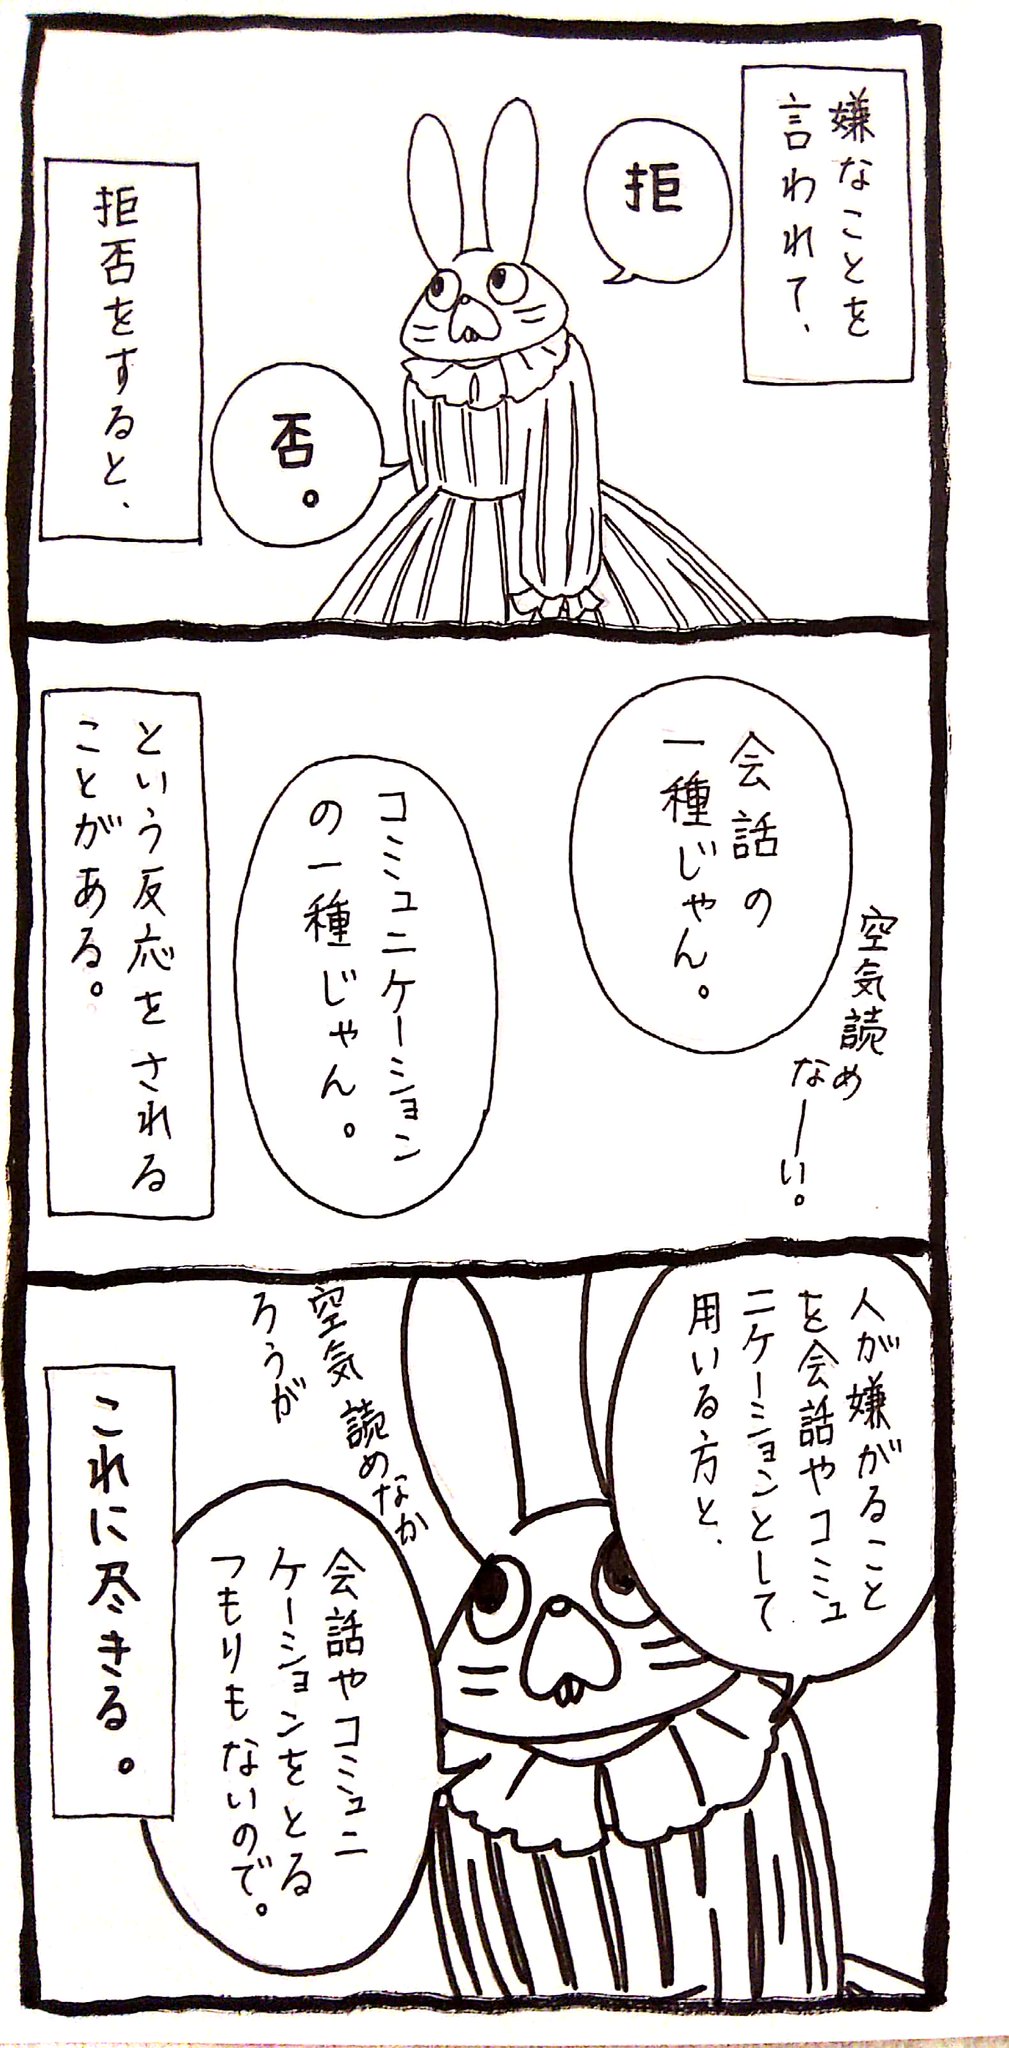 嫌なことを
言われて、
拒
否。
拒否をすると、
空気読め
なーい。
会話の
一種じゃん。
コミュニケーション
の一種じゃん。
という反応をされる
ことがある。
人が嫌がること
を会話やコミュ
ニケーションとして
用いる方と、
空気読めなか
ろうが
会話やコミュニ
ケーションをとる
つもりもないので。
これに尽きる。